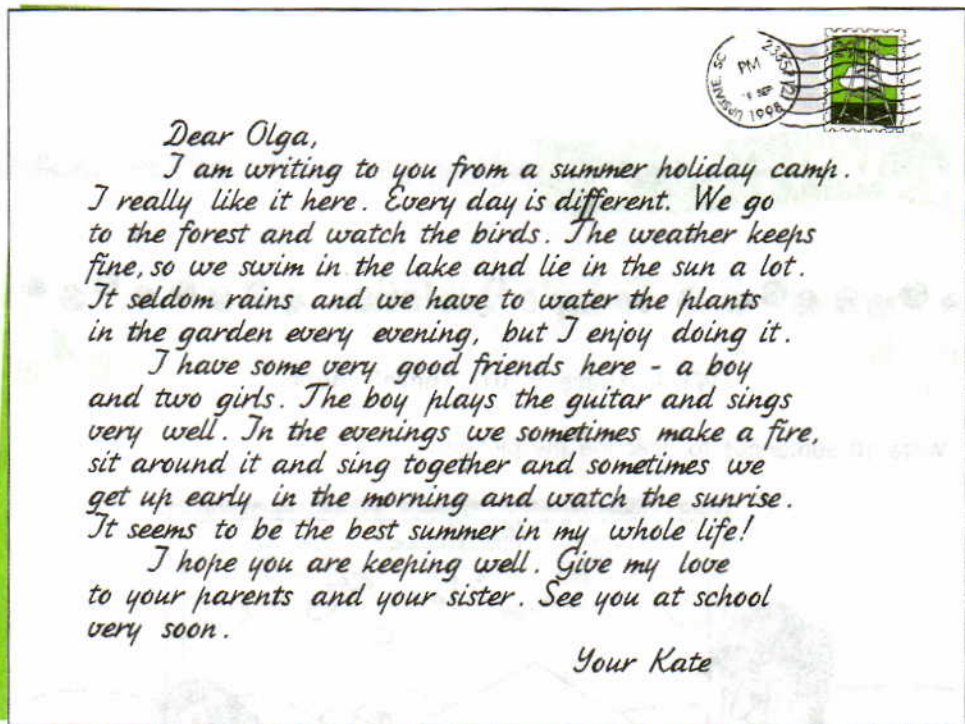 UPSTATE, SC
PM
SEP
1998
Dear Olga,
I am writing to you from a summer holiday camp.
I really like it here. Every day is different. We go
to the forest and watch the birds. The weather keeps
fine, so we swim in the lake and lie in the sun a lot.
It seldom rains and we have to water the plants
in the garden every evening, but I enjoy doing it.
I have some very good friends here - a boy
and two girls. The boy plays the guitar and sings
very well. In the evenings we sometimes make a fire,
sit around it and sing together and sometimes we
get up early in the morning and watch the sunrise.
It seems to be the best summer in my whole life!
I hope you are keeping well. Give my love
to your parents and your sister. See you at school
very soon.
Your Kate